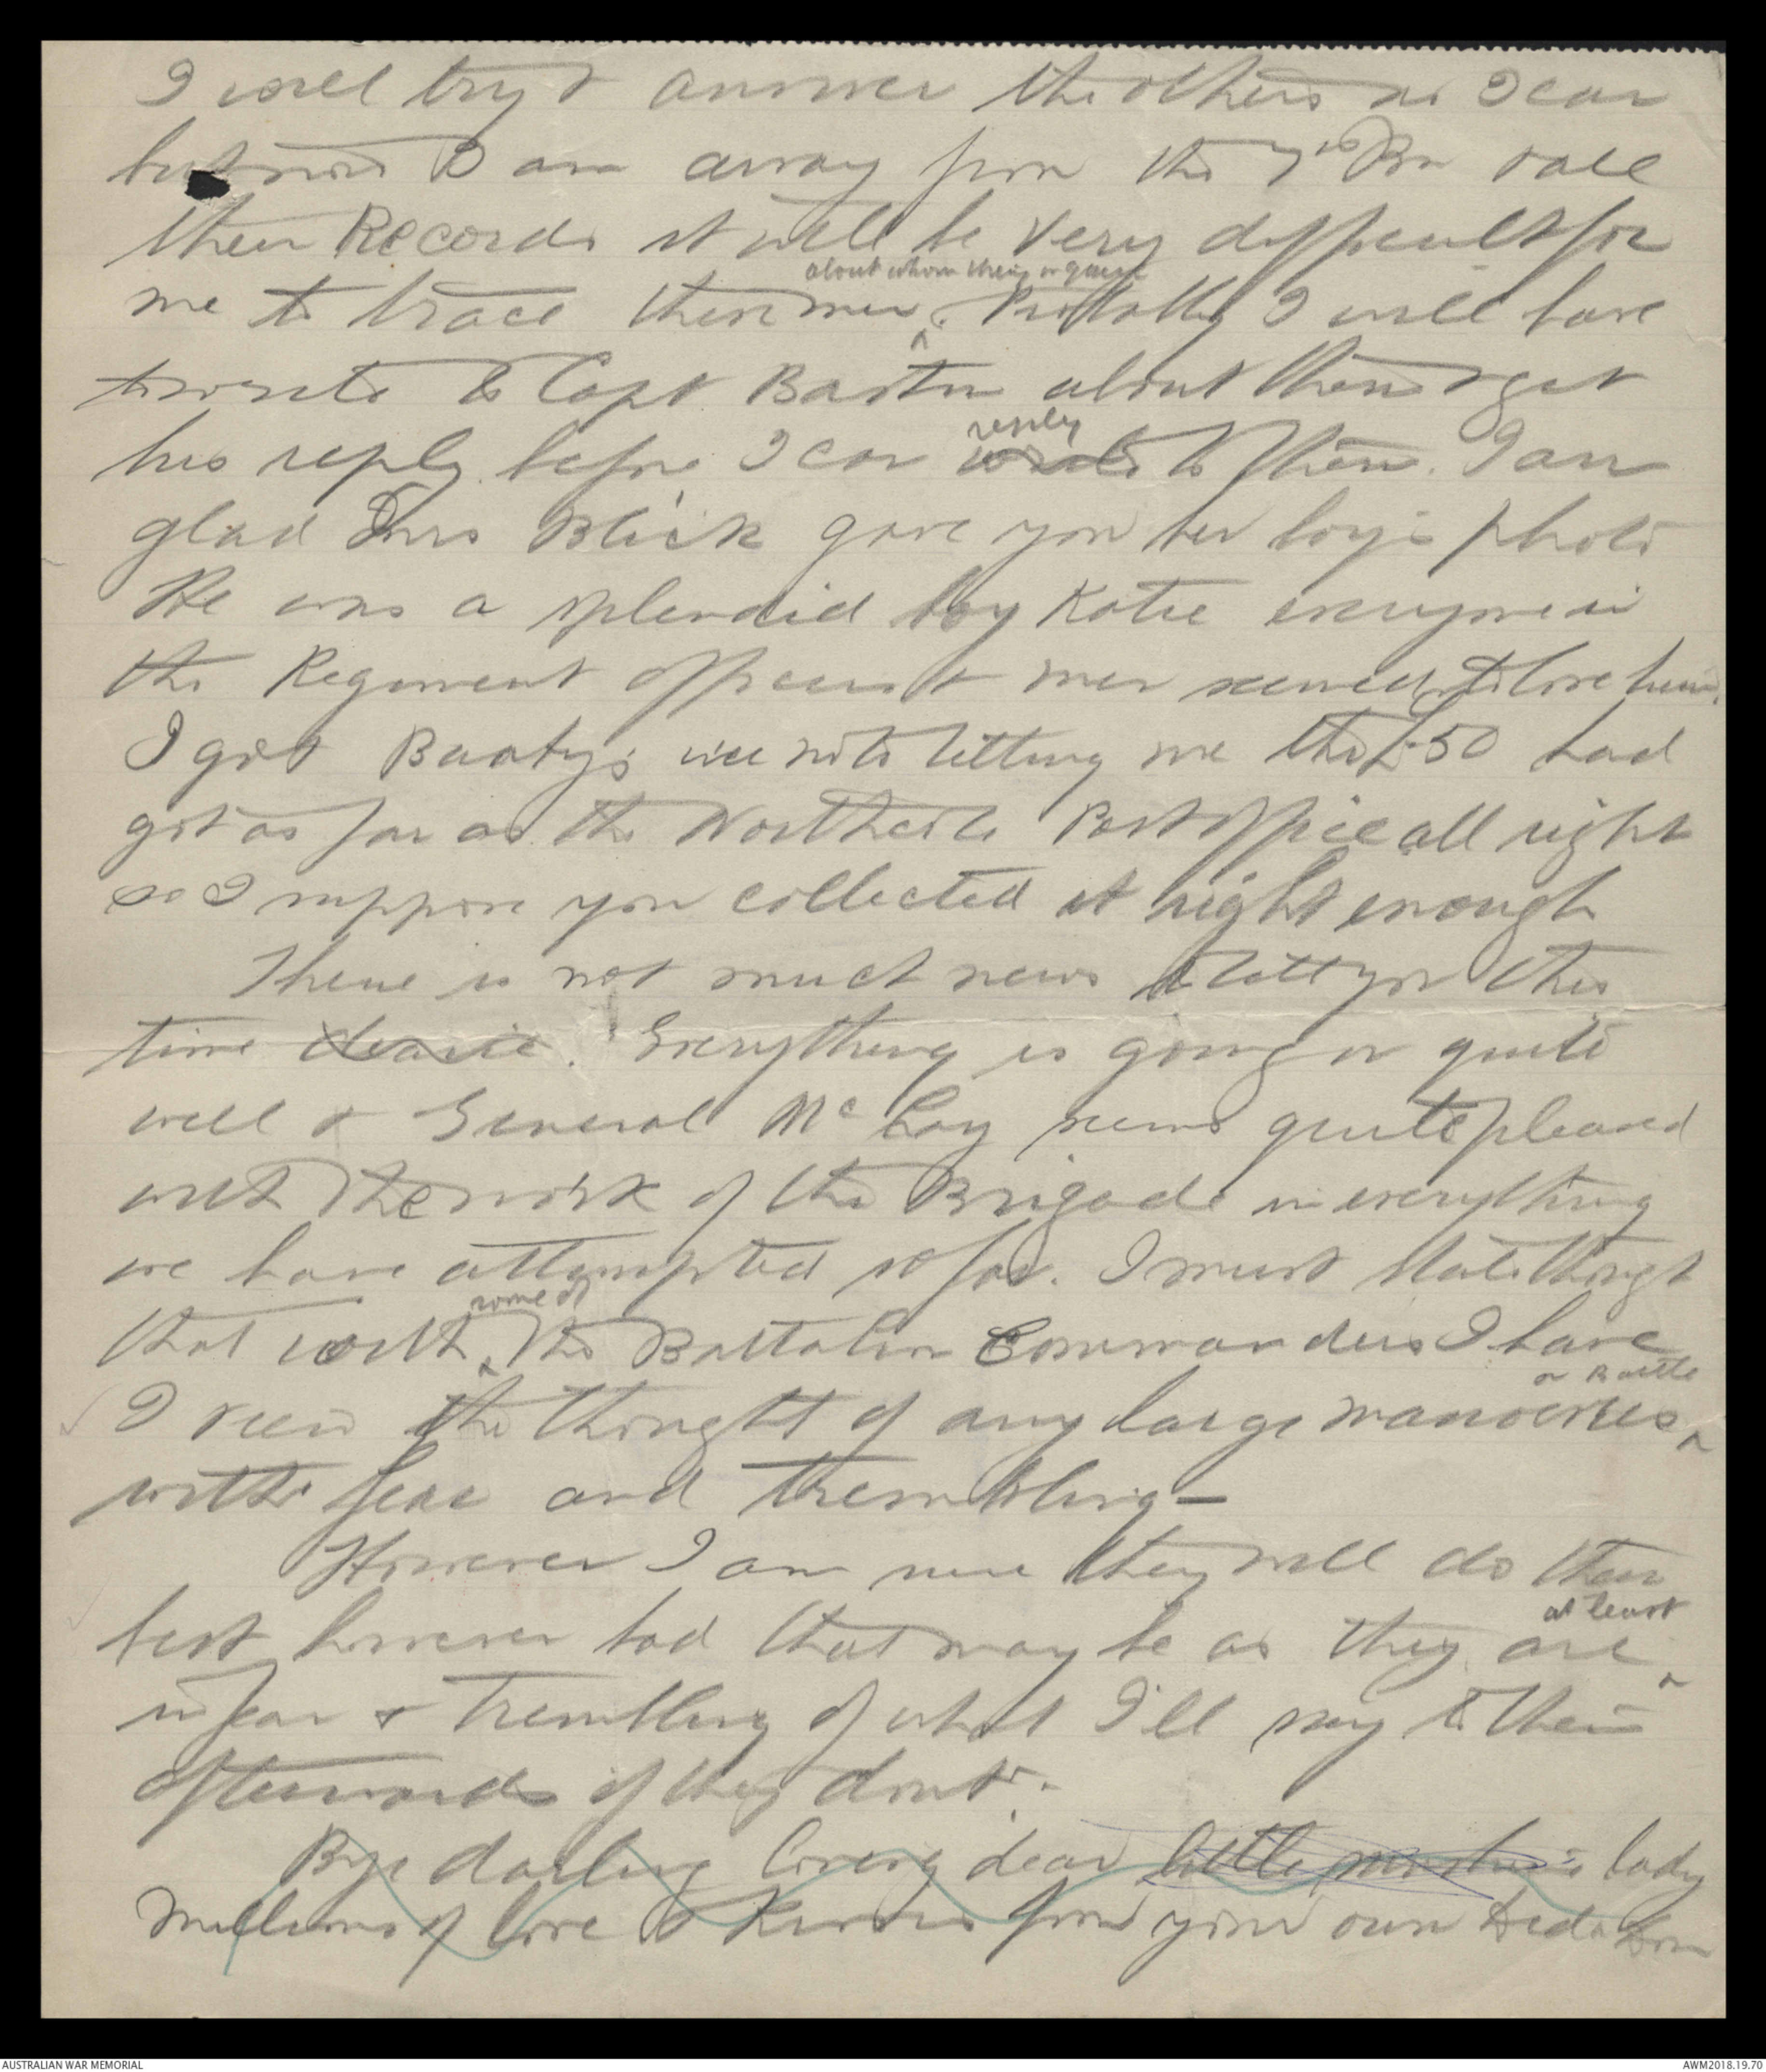 I will try & answer the others as I can
but now I am away from the 7th Bn & all
their Records it will be very difficult for
about whom they enquire
me to trace these men ^. Probably I will have
to write to Capt Bastin about them & get
reply
his reply before I can write to them. I am
glad Mrs Blick gave you her boy's photo
He was a splendid boy Katie everyone in
the Regiment officers & men seemed to love him.
I got Baaty's note letting me the £50 had
got as far as the Northcote Post office all right
so I suppose you collected it right enough
There is not much news to tell you this
time dearie. Everything is going on quite
well & General McCay seems quite pleased
with the work of the Brigade in everything
we have attempted so far. I must state though
some of
that with ^ the Battalion Commanders I have
or Battle
I view the thought of any large manoevres ^
with fear and trembling —
However I am sure they will do their
at least
best however bad that may be as they are ^
in fear & trembling of what I'll say to them
afterwards if they dont.
Bye darling loving dear little lady
Millions of love & kisses from your own
AUSTRALIAN WAR MEMORIAL
AWM2018.19.70